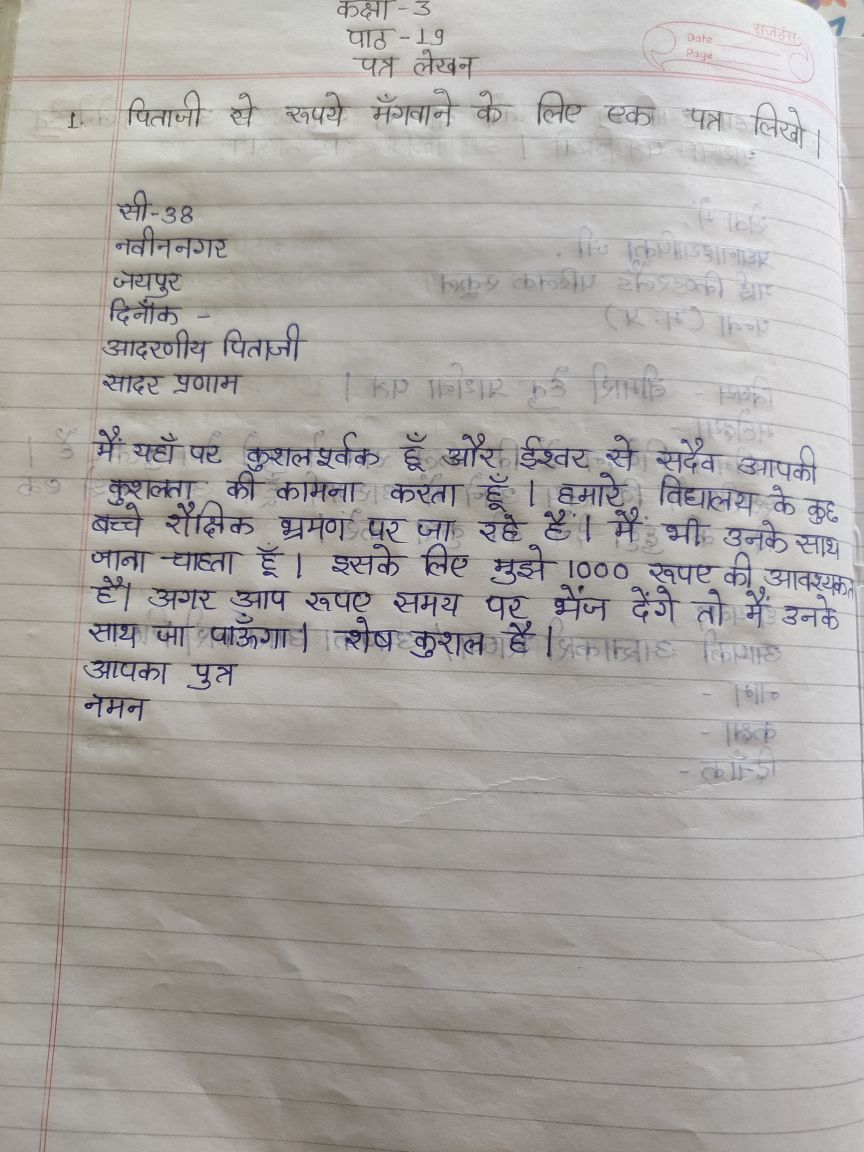 कक्षा - 3
पाठ - 19
पत्र लेखन
राजहंस
Date
Page
1. पिताजी से रूपये मँगवाने के लिए एक पत्र लिखो।
सी-38
नवीननगर
जयपुर
दिनाँक -
आदरणीय पिताजी
सादर प्रणाम
मैं यहाँ पर कुशलपूर्वक हूँ और ईश्वर से सदैव आपकी
कुशलता की कामना करता हूँ। हमारे विद्यालय के कुछ
बच्चे शैक्षिक भ्रमण पर जा रहे हैं। मैं भी उनके साथ
जाना चाहता हूँ। इसके लिए मुझे 1000 रूपए की आवश्यकता
है। अगर आप रूपए समय पर भेंज देंगे तो मैं उनके
साथ जा पाऊँगा। शेष कुशल है।
आपका पुत्र
नमन